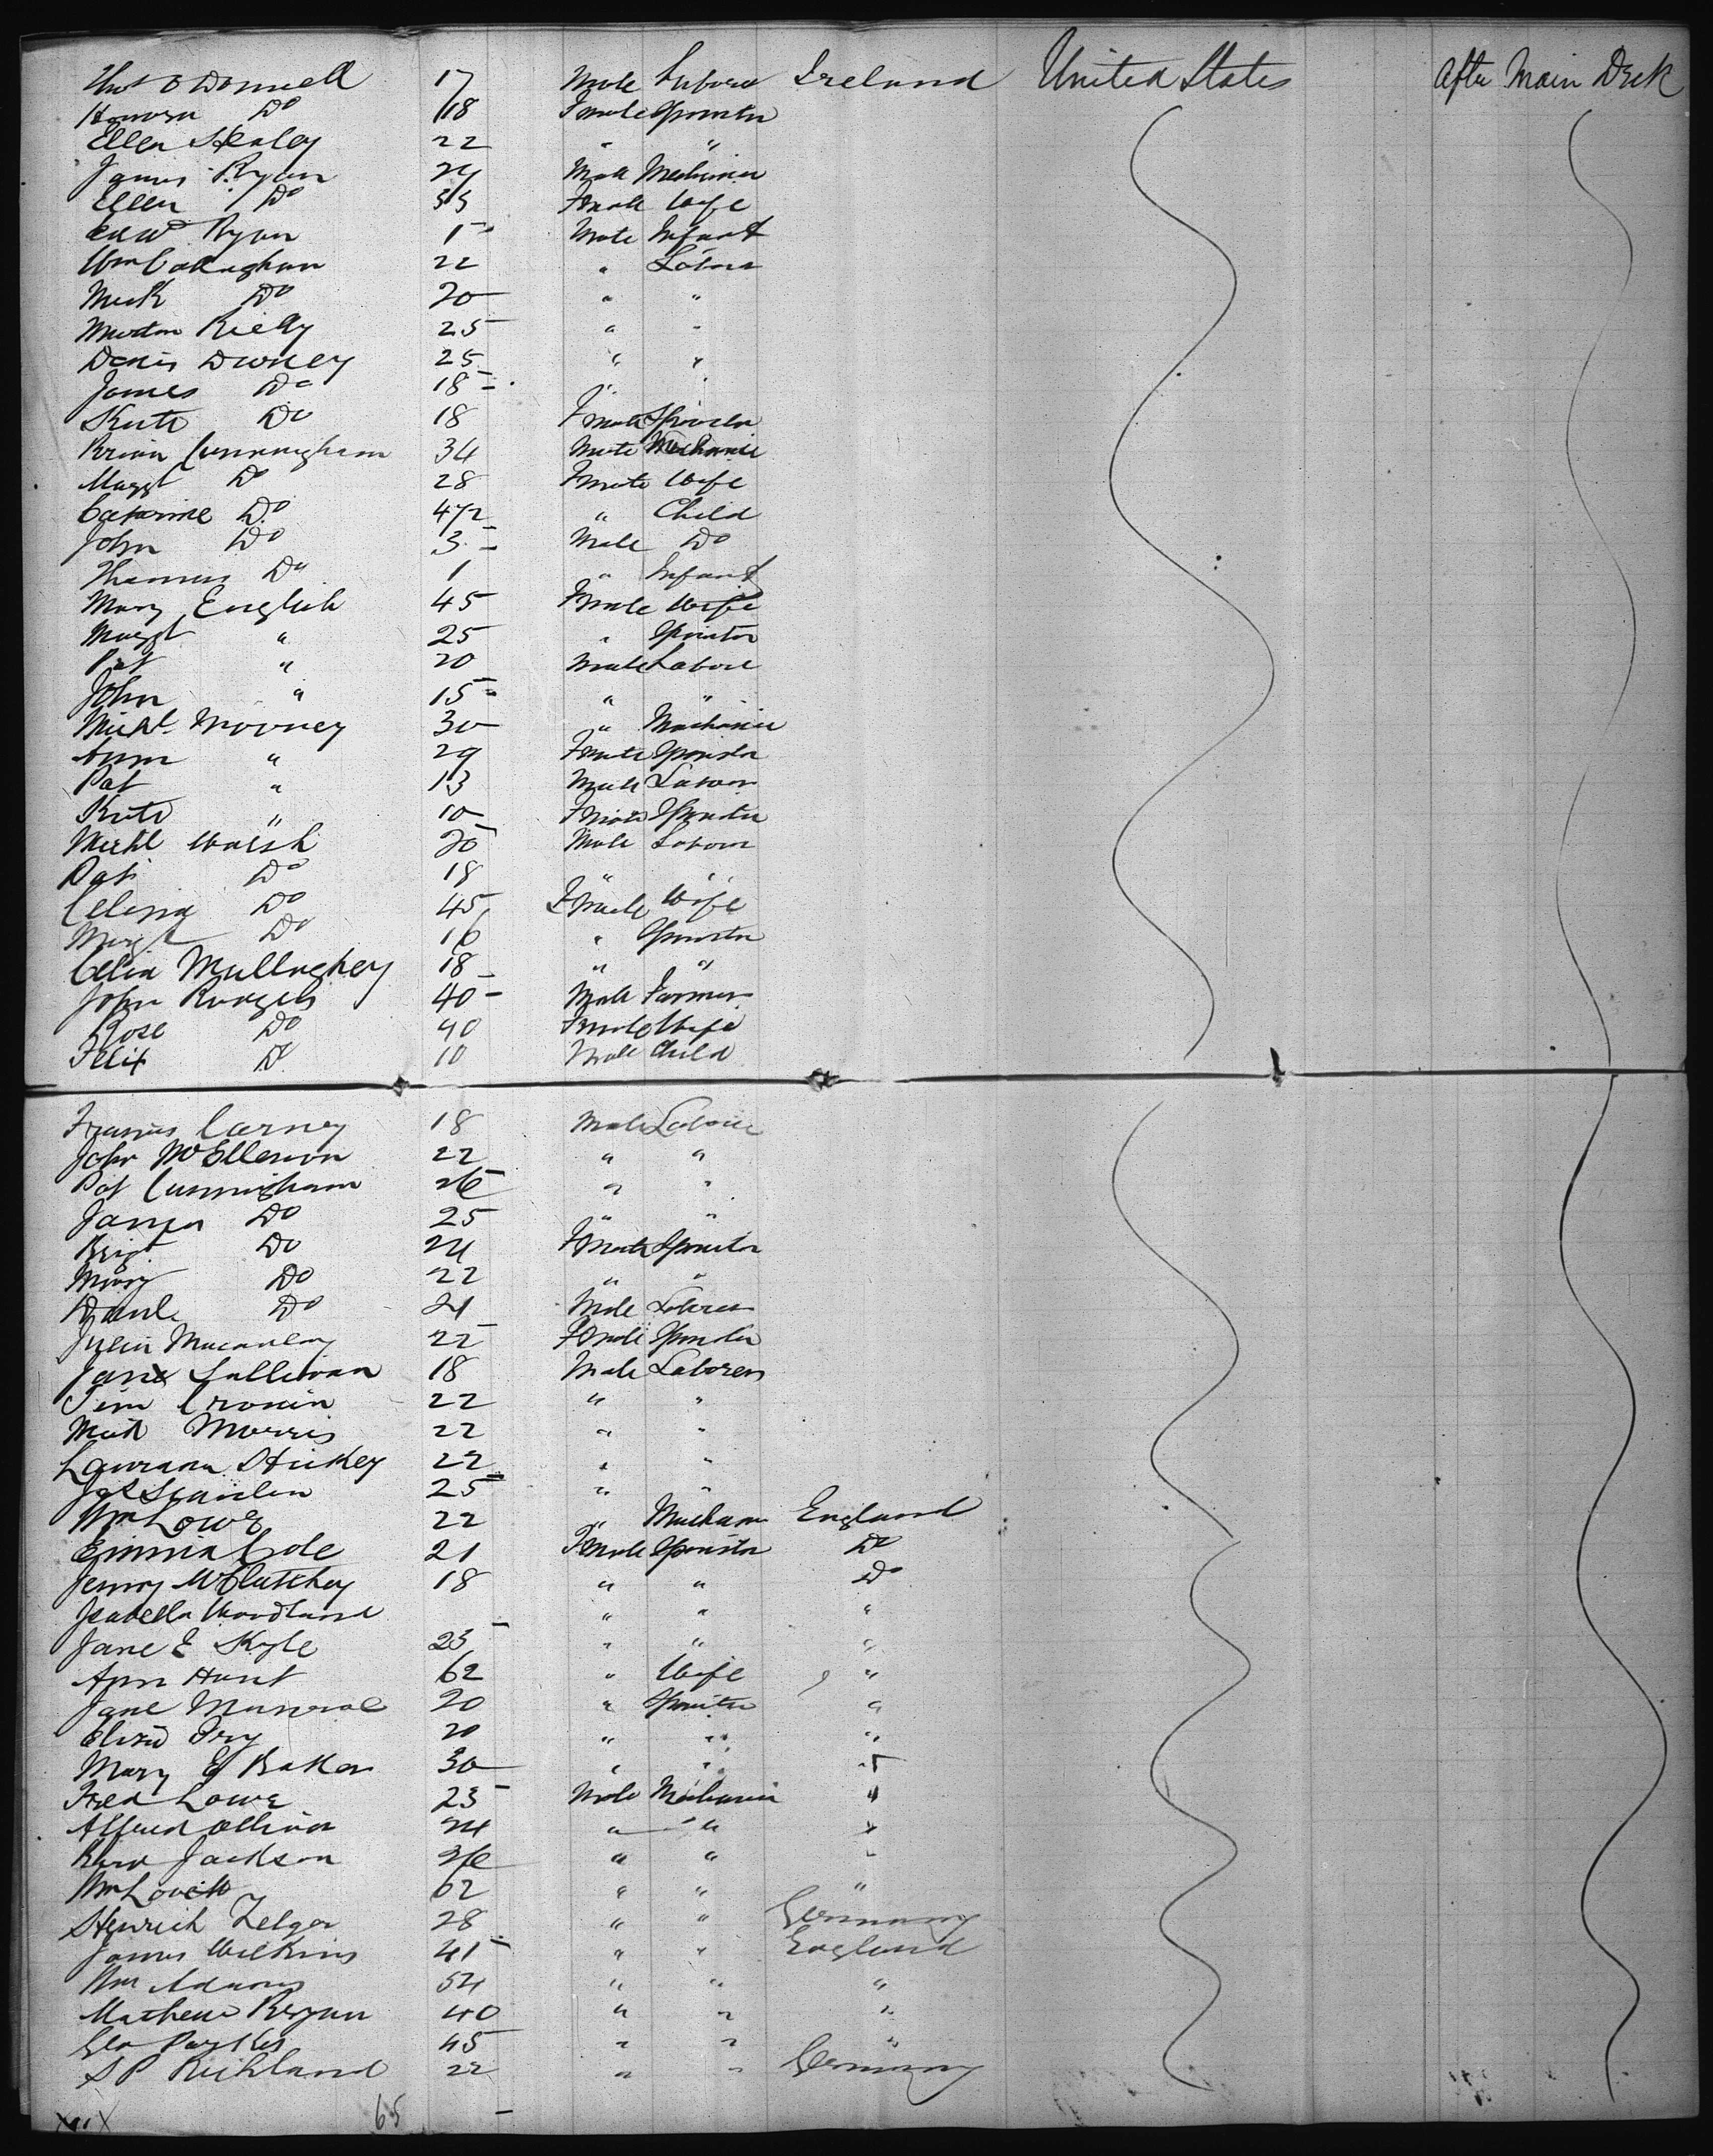 Thos O Donnell 17 Male Labore Ireland United States After Main Deck
Honora Do 18 Female Spinster
Ellen Healey 22 " "
James Ryan 24 Male Mechanic
Ellen Do 33 Female Wife
Edwd Ryan 1 Male Infant
Wm Callaghan 22 " Labore
Do 20 " "
Rielly 25 " "
Denis Downey 25 " "
James Do 18 " "
Kate Do 18 Female Spinster
Brian Cunningham 34 Male Mechanic
Maggt Do 28 Female Wife
Catorine Do " Child
John Do 3 Male Do
Thomas Do 1 " Infant
Mary English 45 Female Wife
Maggt " 25 " Spinster
Pat " 20 Male Labore
John " 15 " "
Michl Mooney 30 " Mechanic
Ann " 29 Female Spinster
Pat " 13 Male Labour
Kate " 10 Female Spinster
Michl Walsh 20 Male Labour
Pat Do 18 " "
Do 45 Female Wife
Margt Do 16 " Spinster
Celia Mullaghey 18 " "
John 40 Male Farmer
Rose Do 40 Female Wife
Felix Do 10 Male Child
Francis Carney 18 Male Labore
John 22 " "
Pat Cunningham 26 " "
James Do 25 " "
Brigt Do 24 Female Spinster
Mary Do 22 " "
Danl Do 21 Male Laborer
Julia Macauley 22 Female Spinster
Sullivan 18 Male Laborer
Tim Cronin 22 " "
Morris 22 " "
Hickey 22 " "
Jas Scanlen 25 " "
Wm Lowe 22 " England
Emma Cole 21 Female Spinster Do
Jenny McClutchey 18 " " Do
Isabella Woodland " " "
Jane E Kyle 23 " " "
Ann Hunt 62 " Wife "
Jane Munroe 20 " Spinster "
Eliza Fry 20 " " "
Mary E Baker 30 " " "
Fred Lowe 23 Male Mechanic "
Alfred 24 " " "
Jackson 36 " " "
Wm 62 " " "
Henrich Zelger 28 " " Germany
James Wilkins 41 " " England
Wm Adams 54 " " "
Mathew Regan 40 " " "
Geo 45 " " "
S P Richland 22 " " Germany
65